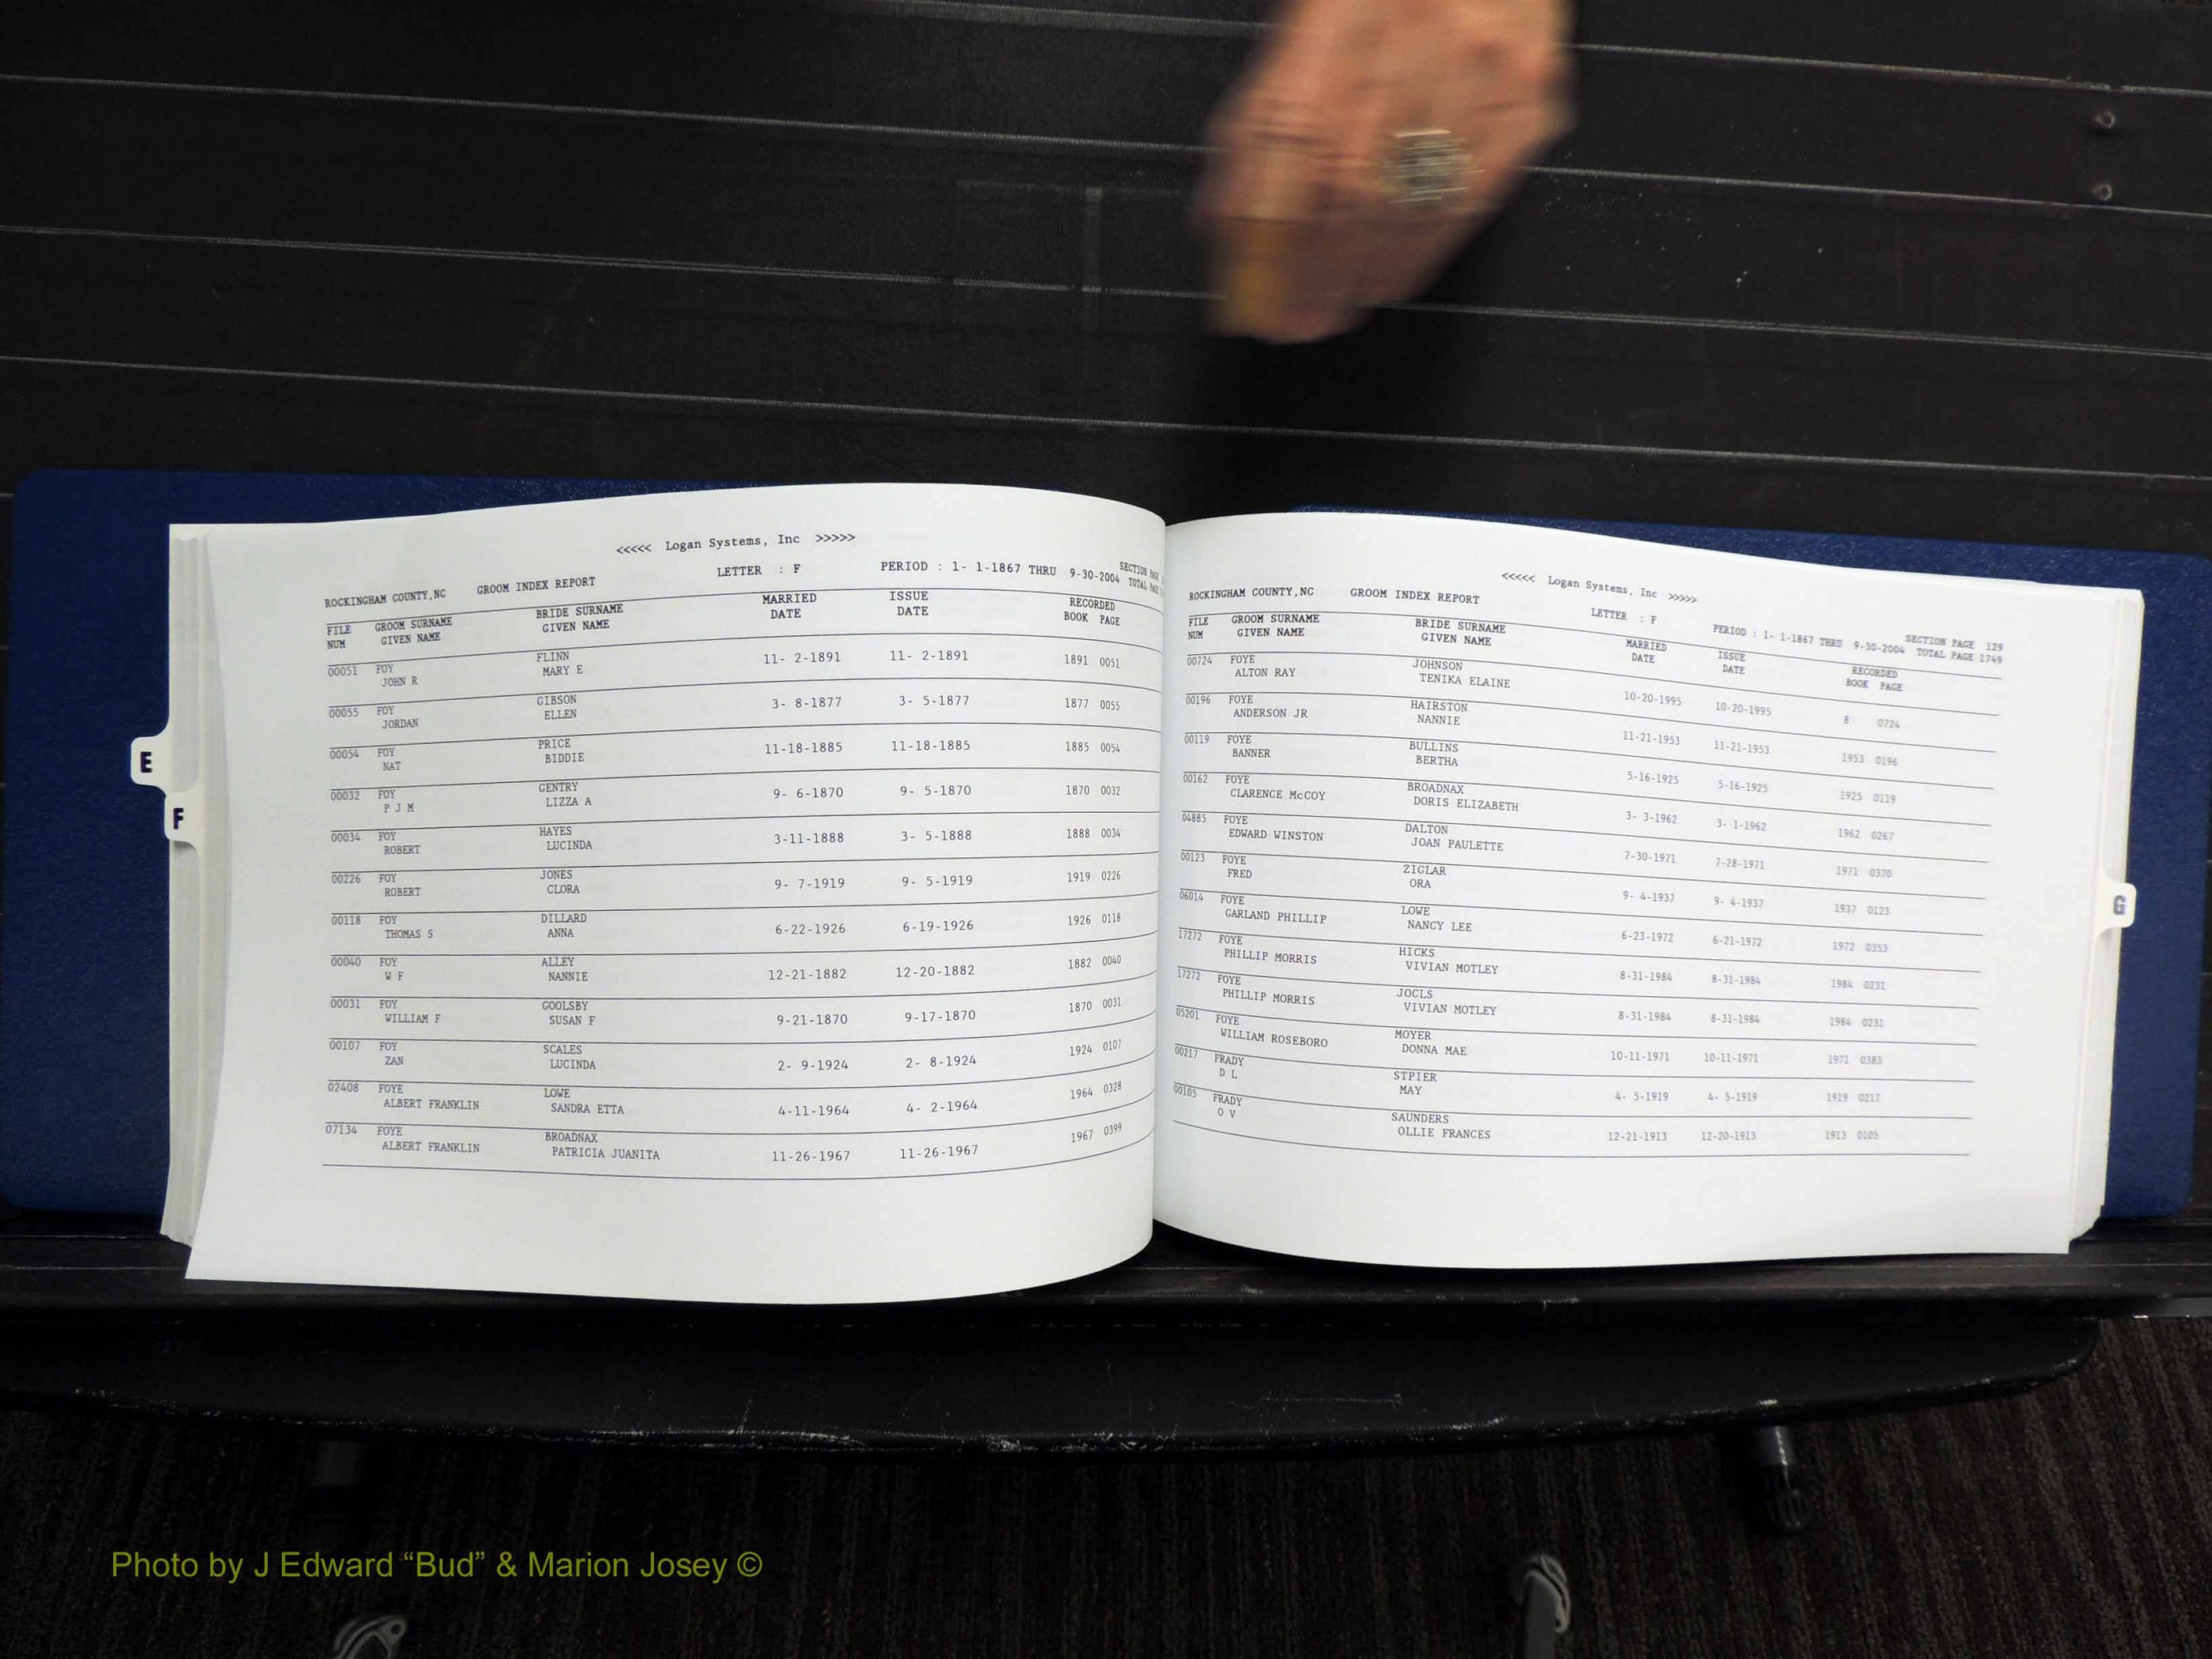 <<<<< Logan Systems, Inc >>>>>
ROCKINGHAM COUNTY,NC GROOM INDEX REPORT LETTER : F PERIOD : 1- 1-1867 THRU 9-30-2004 SECTION PAGE
TOTAL PAGE
FILE GROOM SURNAME BRIDE SURNAME MARRIED ISSUE RECORDED
NUM GIVEN NAME GIVEN NAME DATE DATE BOOK PAGE
00051 FOY FLINN 11- 2-1891 11- 2-1891 1891 0051
JOHN R MARY E
00055 FOY GIBSON 3- 8-1877 3- 5-1877 1877 0055
JORDAN ELLEN
00054 FOY PRICE 11-18-1885 11-18-1885 1885 0054
NAT BIDDIE
00032 FOY GENTRY 9- 6-1870 9- 5-1870 1870 0032
P J M LIZZA A
00034 FOY HAYES 3-11-1888 3- 5-1888 1888 0034
ROBERT LUCINDA
00226 FOY JONES 9- 7-1919 9- 5-1919 1919 0226
ROBERT CLORA
00118 FOY DILLARD 6-22-1926 6-19-1926 1926 0118
THOMAS S ANNA
00040 FOY ALLEY 12-21-1882 12-20-1882 1882 0040
W F NANNIE
00031 FOY GOOLSBY 9-21-1870 9-17-1870 1870 0031
WILLIAM F SUSAN F
00107 FOY SCALES 2- 9-1924 2- 8-1924 1924 0107
ZAN LUCINDA
02408 FOYE LOWE 4-11-1964 4- 2-1964 1964 0328
ALBERT FRANKLIN SANDRA ETTA
07134 FOYE BROADNAX 11-26-1967 11-26-1967 1967 0399
ALBERT FRANKLIN PATRICIA JUANITA
E
F
<<<<< Logan Systems, Inc >>>>>
ROCKINGHAM COUNTY,NC GROOM INDEX REPORT LETTER : F PERIOD : 1- 1-1867 THRU 9-30-2004 SECTION PAGE 129
TOTAL PAGE 1749
FILE GROOM SURNAME BRIDE SURNAME MARRIED ISSUE RECORDED
NUM GIVEN NAME GIVEN NAME DATE DATE BOOK PAGE
00724 FOYE JOHNSON 10-20-1995 10-20-1995 8 0724
ALTON RAY TENIKA ELAINE
00196 FOYE HAIRSTON 11-21-1953 11-21-1953 1953 0196
ANDERSON JR NANNIE
00119 FOYE BULLINS 5-16-1925 5-16-1925 1925 0119
BANNER BERTHA
00162 FOYE BROADNAX 3- 3-1962 3- 1-1962 1962 0267
CLARENCE McCOY DORIS ELIZABETH
04885 FOYE DALTON 7-30-1971 7-28-1971 1971 0370
EDWARD WINSTON JOAN PAULETTE
00123 FOYE ZIGLAR 9- 4-1937 9- 4-1937 1937 0123
FRED ORA
06014 FOYE LOWE 6-23-1972 6-21-1972 1972 0353
GARLAND PHILLIP NANCY LEE
17272 FOYE HICKS 8-31-1984 8-31-1984 1984 0231
PHILLIP MORRIS VIVIAN MOTLEY
17272 FOYE JOCLS 8-31-1984 8-31-1984 1984 0231
PHILLIP MORRIS VIVIAN MOTLEY
05201 FOYE MOYER 10-11-1971 10-11-1971 1971 0383
WILLIAM ROSEBORO DONNA MAE
00217 FRADY STPIER 4- 5-1919 4- 5-1919 1919 0217
D L MAY
00105 FRADY SAUNDERS 12-21-1913 12-20-1913 1913 0105
O V OLLIE FRANCES
G
Photo by J Edward “Bud” & Marion Josey ©